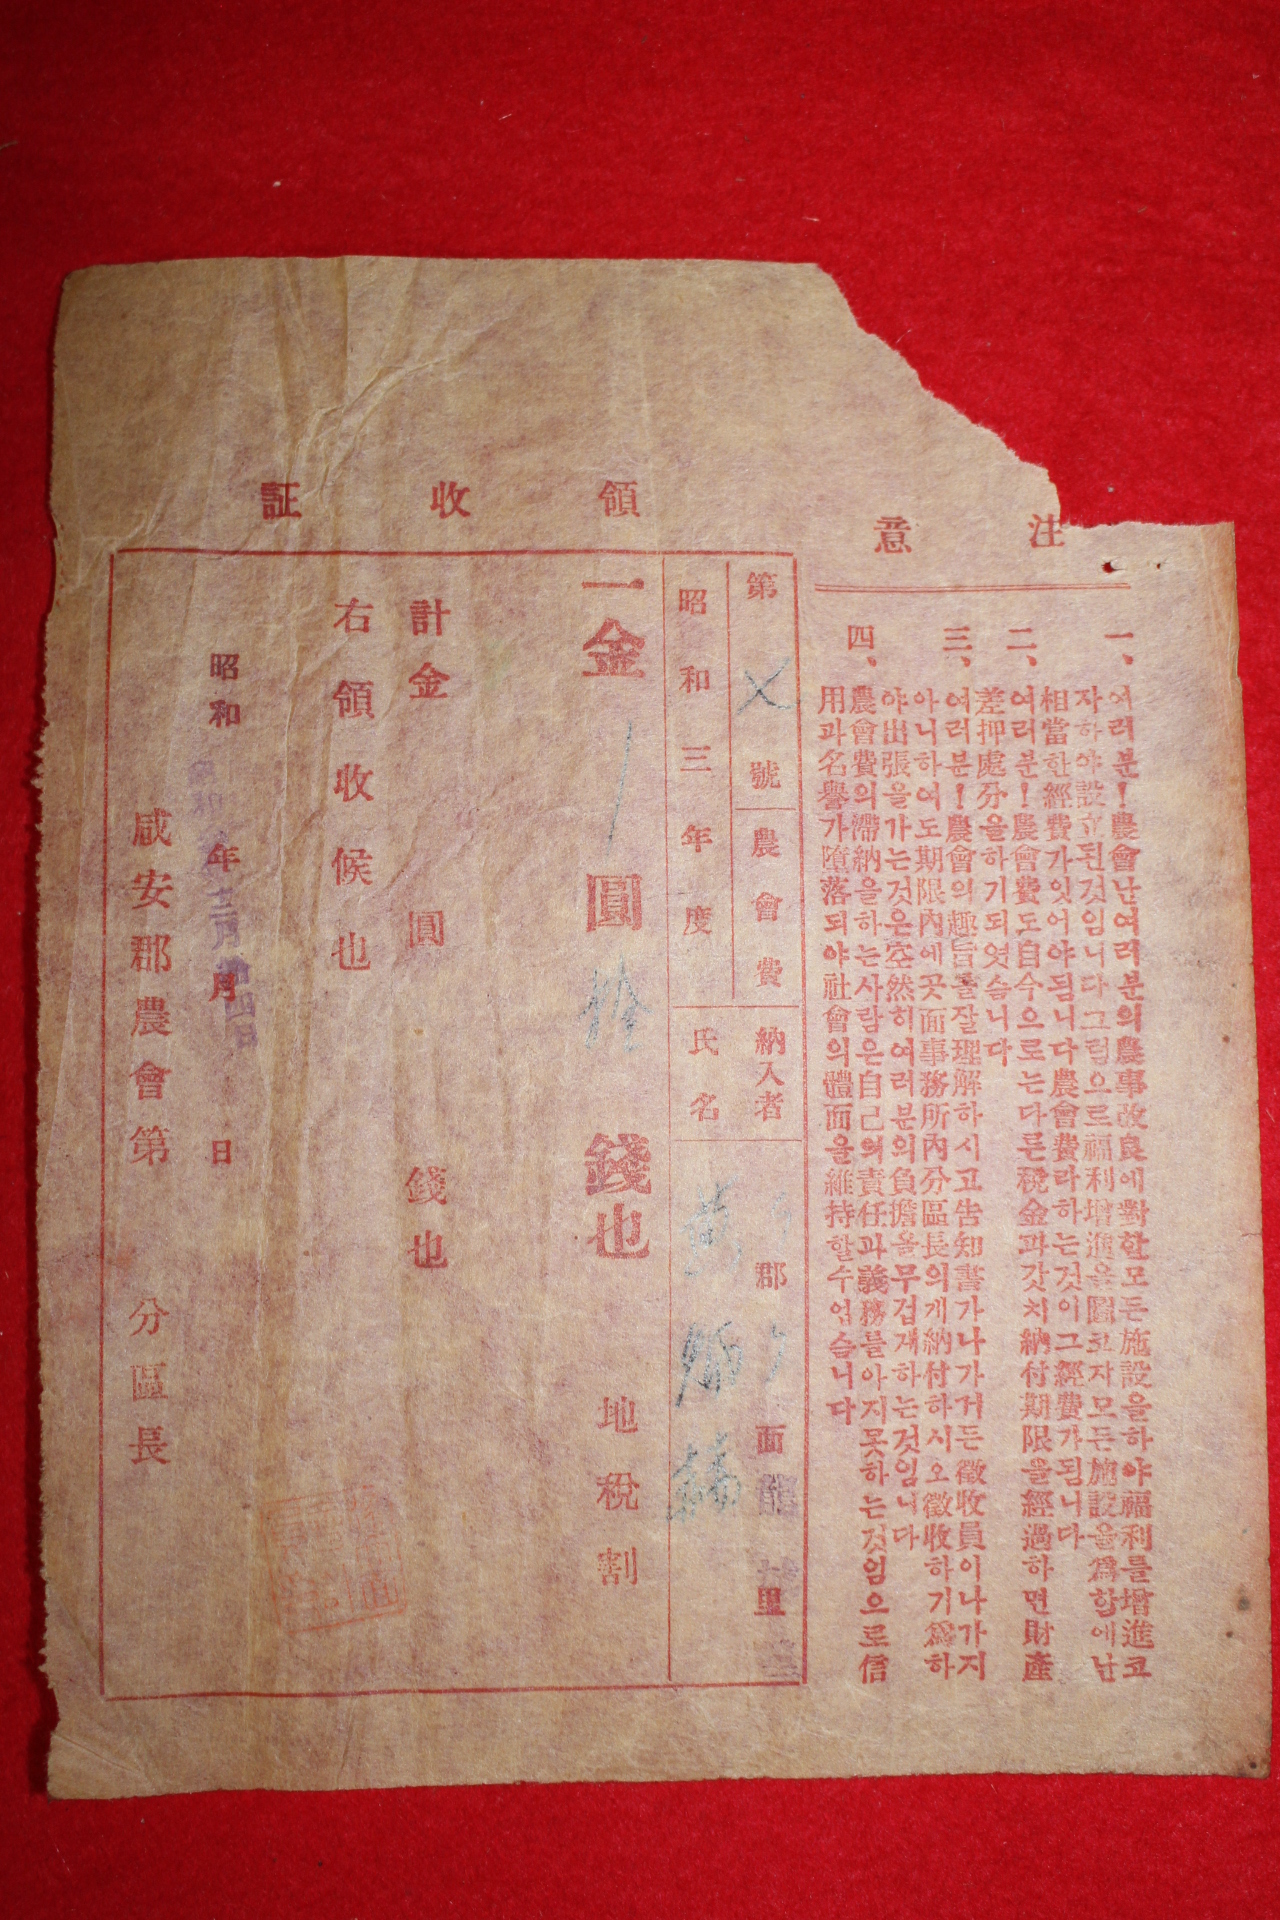 注意
一、여러분！農會난여러분의農事改良에對한모든施設을하야福利를增進코
자하야設立된것임니다그럼으로福利增進을圖코자모든施設을爲함에난
相當한經費가잇어야됨니다農會費라하는것이그經費가됨니다
二、여러분！農會費도自今으로는다른稅金과갓치納付期限을經過하면財產
差押處分을하기되엿슴니다
三、여러분！農會의趣旨를잘理解하시고告知書가나가거든徵收員이나가지
아니하여도期限內에곳面事務所內分區長의게納付하시오徵收하기爲하
야出張을가는것은空然히여러분의負擔을무겁게하는것임니다
四、農會費의滯納을하는사람은自己의責任과義務를아지못하는것임으로信
用과名譽가墮落되야社會의體面을維持할수업슴니다
領收証
第 號 農會費 納入者 郡 面 龍 里
昭和三年度 氏名
一金 圓 拾 錢也 地稅割
計金 圓 錢也
右領收候也
昭和 年 月 日
咸安郡農會第 分區長